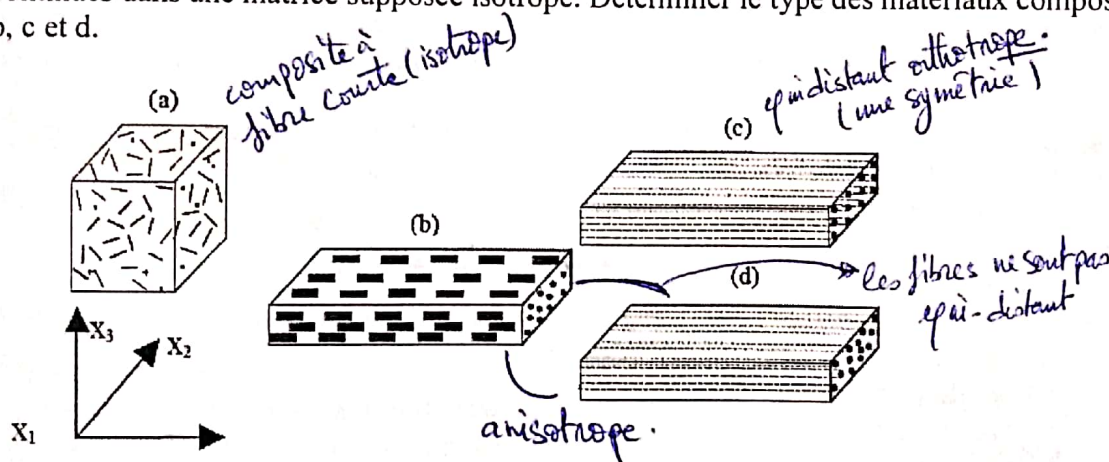 continues dans une matrice supposée isotrope. Déterminer le type des matériaux compos
b, c et d.
composite à
fibre courte (isotrope)
équidistant orthotrope.
(une symétrie)
(a)
(c)
(b)
(d)
les fibres ne sont pas
équi-distant
X3
X2
X1
anisotrope.